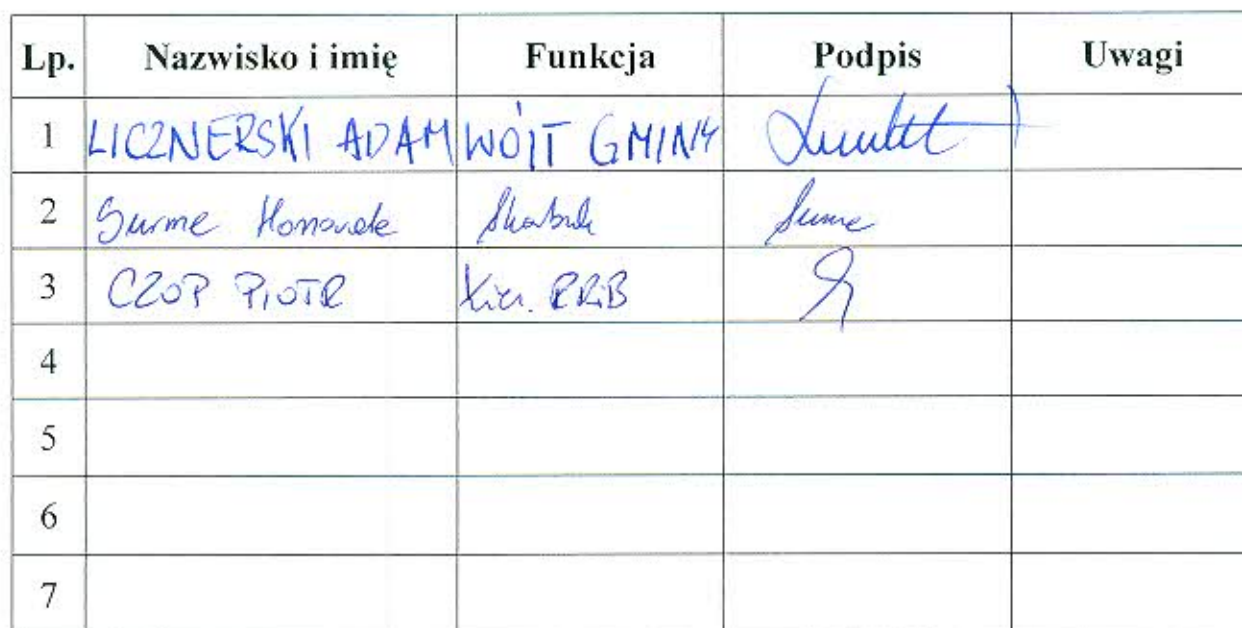 Lp. Nazwisko i imię Funkcja Podpis Uwagi
1 LICZNERSKI ADAM WÓJT GMINY
2 Surme
3 CZOP PIOTR Kier. RRiB
4
5
6
7